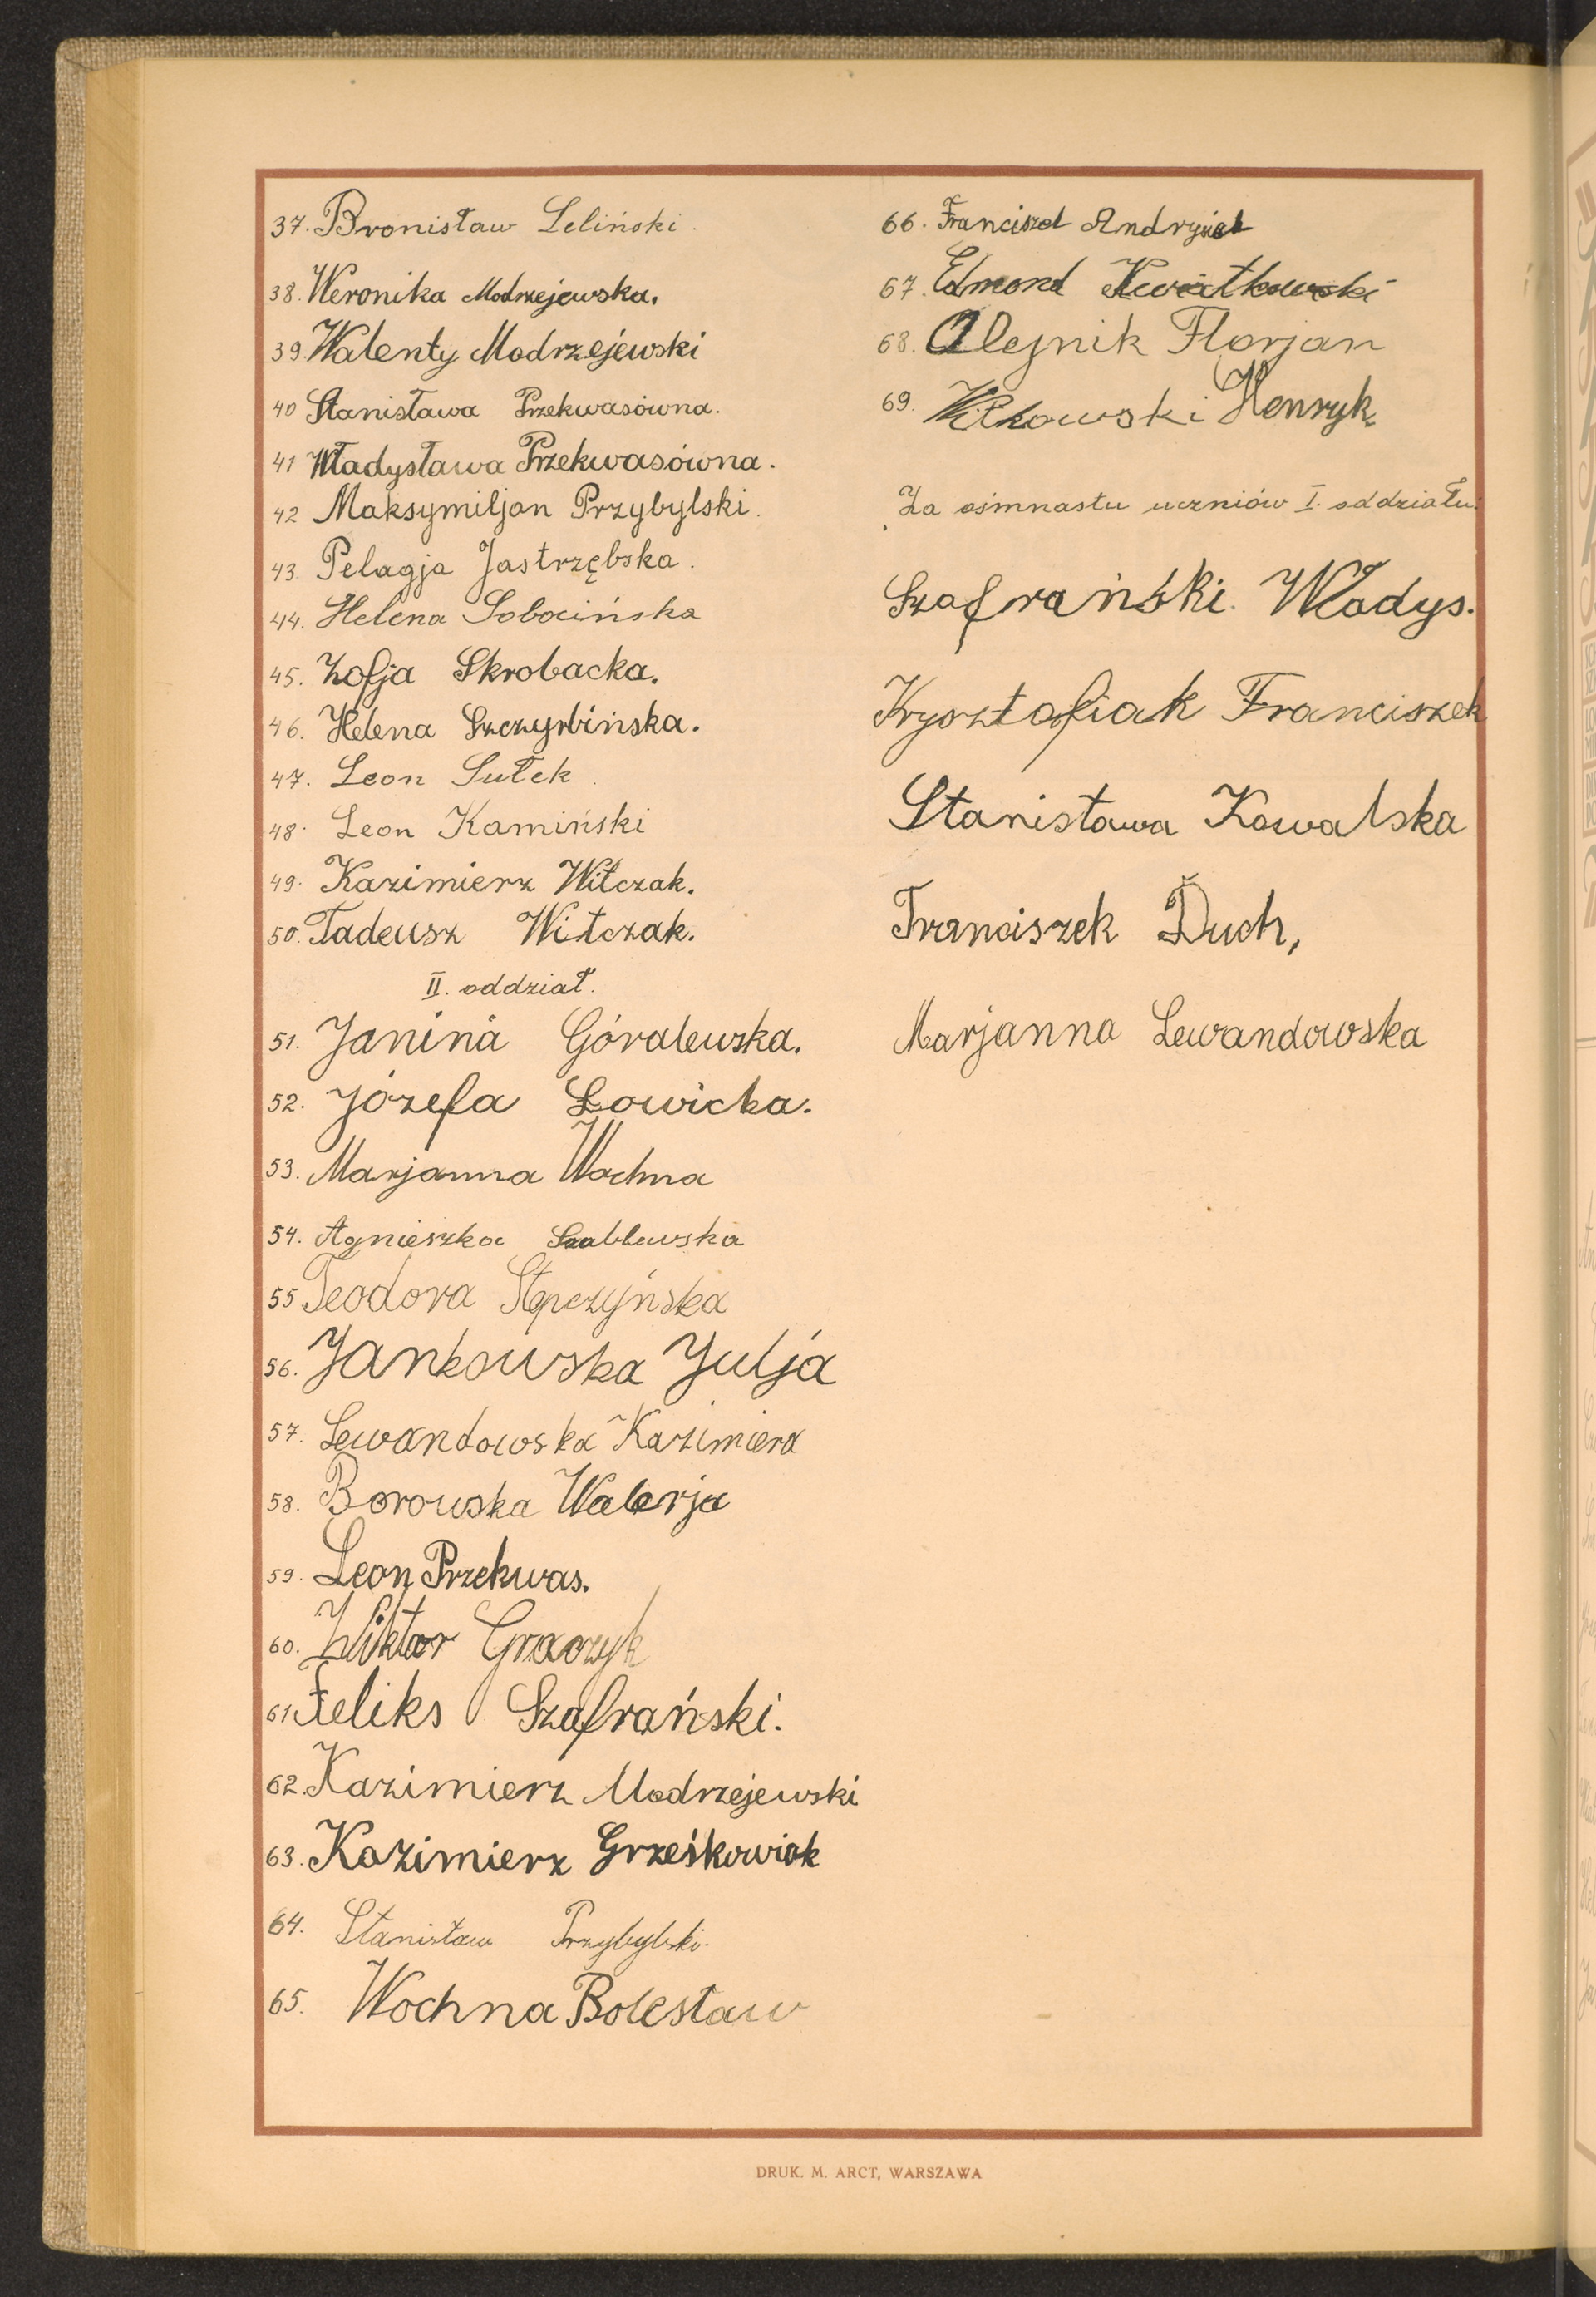 37. Bronisław Leliński.
38. Weronika Modrzejewska.
39. Walenty Modrzejewski
40 Stanisława Przekwasówna.
41 Władysława Przekwasówna.
42 Maksymiljan Przybylski.
43. Pelagja Jastrzębska.
44. Helena Sobocińska
45. Zofja Skrobacka.
46. Helena Szczyrbińska.
47. Leon Sułek.
48. Leon Kamiński
49. Kazimierz Witczak.
50. Tadeusz Witczak.
II. oddział.
51. Janina Góralewska.
52. Józefa Łowicka.
53. Marjanna Wochna
54. Agnieszka Szablewska
55 Teodora Stępczyńska
56. Jankowska Julja
57. Lewandowska Kazimiera
58. Borowska Walerja
59. Leon Przekwas.
60. Wiktor Graczyk
61 Feliks Szafrański.
62. Kazimierz Modrzejewski
63. Kazimierz Grześkowiak
64. Stanisław Przybylski.
65. Wochna Bolesław
66. Franciszek
67. Edmond Kwiatkowski
68. Olejnik Florjan
69. Henryk.
Za ośmnastu uczniów I. oddziału:
Szafrański. Władys.
Krysztofiak Franciszek
Stanisława Kowalska
Franciszek Duch,
Marjanna Lewandowska
DRUK. M. ARCT, WARSZAWA